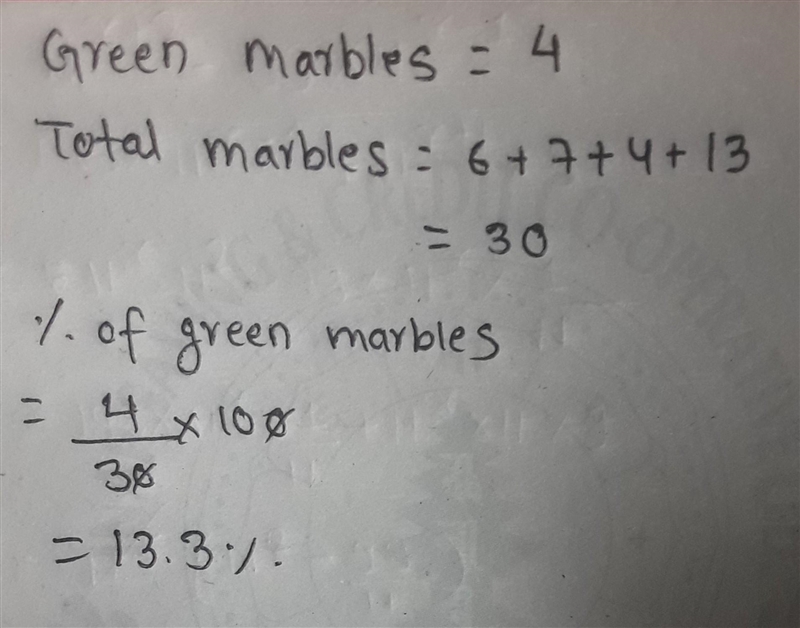 Green marbles = 4
Total marbles = 6 + 7 + 4 + 13
= 30
% of green marbles
= 4/30 × 100
= 13.3 %.